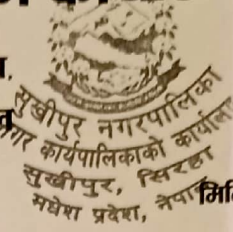 सुखीपुर नगरपालिका
नगर कार्यपालिकाको कार्यालय
सुखीपुर, सिरहा
मधेश प्रदेश, नेपाल
मिति